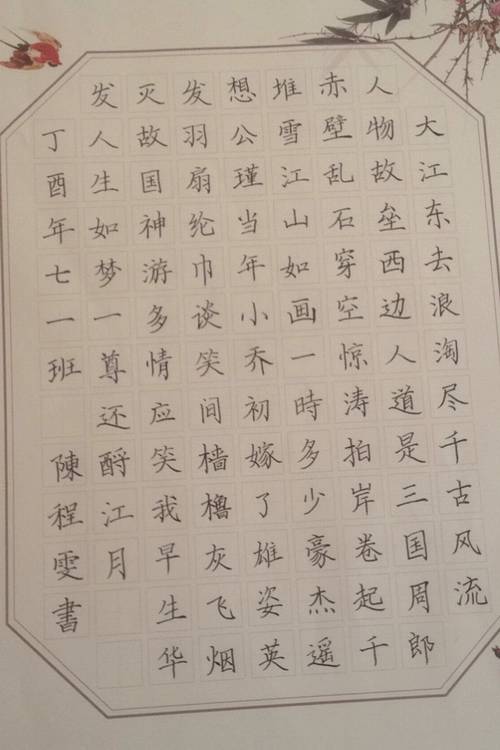 大江东去浪淘尽千古风流
人物故垒西边人道是三国周郎
赤壁乱石穿空惊涛拍岸卷起千
堆雪江山如画一時多少豪杰遥
想公瑾当年小乔初嫁了雄姿英
发羽扇纶巾谈笑间樯橹灰飞烟
灭故国神游多情应笑我早生华
发人生如梦一尊还酹江月
丁酉年七一班 陳程雯書